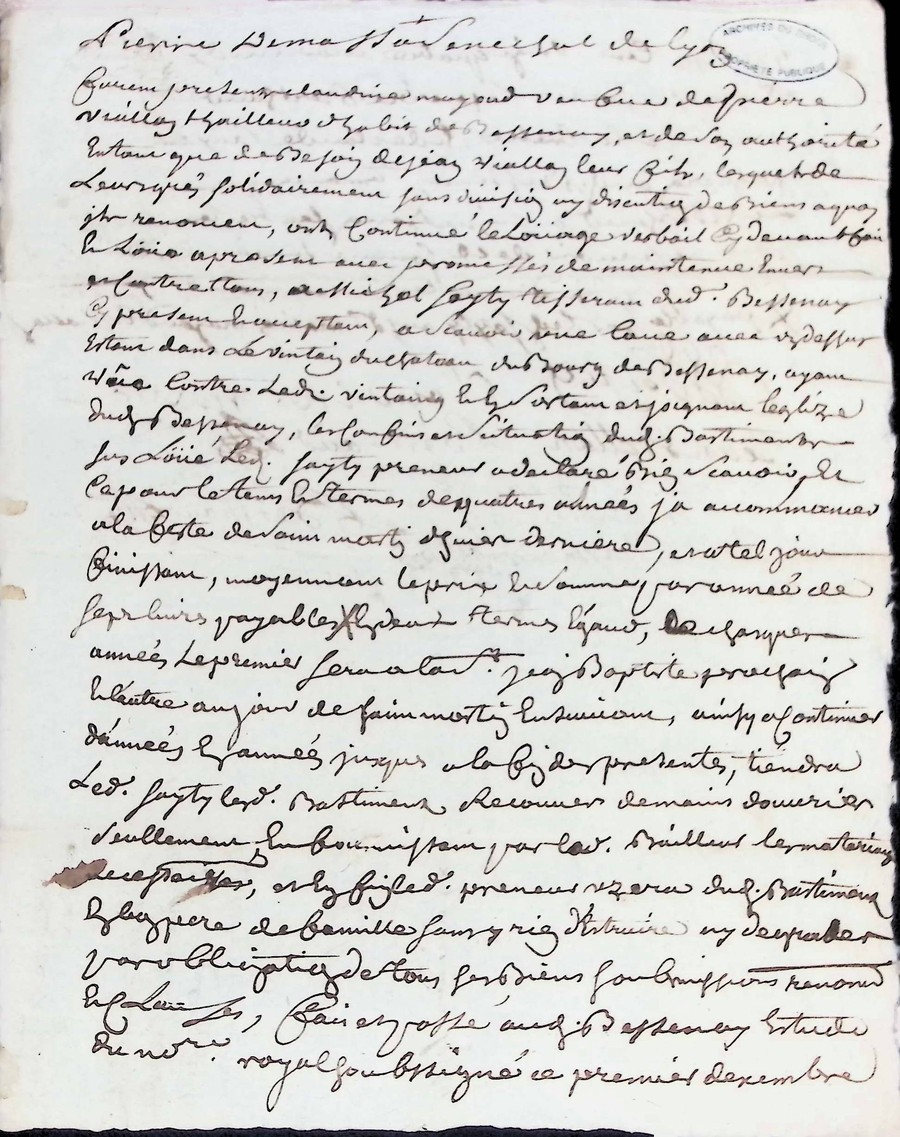 Pierre Demassa Senechal de Lyon
ARCHIVES DU RHÔNE
PROPRIÉTÉ PUBLIQUE
furent presents claudine veufve de Pierre
Viallon thailleur d'habit de Bessenay, et de son authorité
Entant que de Besoin dejean Viallon leur fils, lesquels de
Leurs grés solidairement sans division ny discution de Biens aquoy
ils renoncent, ont continué le Loüage verbail cy devant fait
et Loüe apresent avec promesses de maintenue Envers
et Contre tous, a Michel tisserant dud. Bessenay
cy present et acceptant, a scavoir une cave avec un dessus
Estant dans Le vintain du chateau du Bourg de Bessenay, ayant
Contre Led. vintain et en sortant et joignant leglize
dud. Bessenay, les confins et situation dud. Bastiment
sus Loüé Led. preneur a declaré Bien scavoir, Et
Ce pour le tems et termes de quatres années ja accommancés
a la feste de Saint martin d'hivier derniere, et a tel jour
finissant, moyennant le prix et somme par année de
sept livres payables En deux termes Egaux, de chasques
années Le premier sera a la St. jean Baptiste prochain
et lautre au jour de saint martin Ensuivant, ainsy a Continuer
dannéés En annéés jusques a la fin des presentes, tiendra
Led. led. Bastiment Recouvert de mains douvrier
seullement En fournissant par lad. Bailleur les materiaux
necessaires, et En fin led. preneur uzera dud. Bastiment
En bon pere de famille sans y rien d'Estruire ny degrader
par obligation de tous ses Biens soubmissions renond
et Clauses, fait et passé aud. Bessenay Estude
du nore royal soubsigné ce premier dexembre